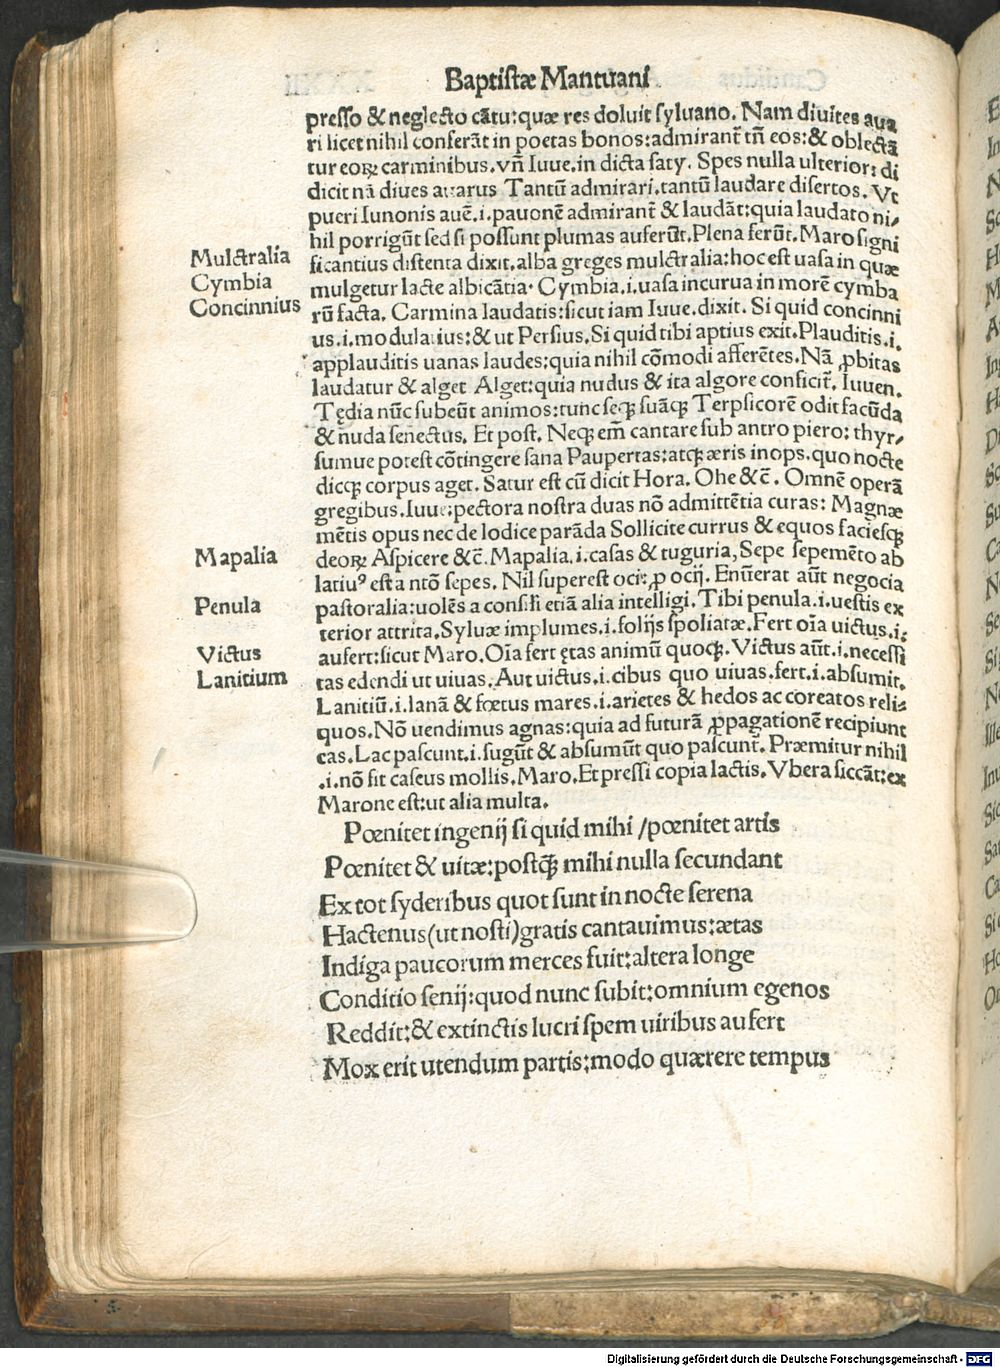 Baptistæ Mantuani
presso & neglecto cātu: quæ res doluit syluano. Nam diuites aua
ri licet nihil conferāt in poetas bonos: admirant̃ tñ eos: & oblectā
tur eoꝝ carminibus. vñ Iuue. in dicta saty. Spes nulla ulterior: di
dicit nā diues auarus Tantū admirari. tantū laudare disertos. Vt
pueri Iunonis auē .i. pauonē admirant̃ & laudāt: quia laudato ni/
hil porrigūt sed si possunt plumas auferūt. Plena ferūt. Maro signi
Mulctralia
ficantius distenta dixit. alba greges mulctralia: hoc est uasa in quæ
Cymbia
mulgetur lacte albicātia. Cymbia .i. uasa incurua in morē cymba
Concinnius
rū facta. Carmina laudatis: sicut iam Iuue. dixit. Si quid concinni
us .i. modulatius: & ut Persius. Si quid tibi aptius exit. Plauditis .i.
applauditis uanas laudes: quia nihil cōmodi afferētes. Nā ꝓbitas
laudatur & alget Alget: quia nudus & ita algore conficit̃. Iuuen.
Tędia nūc subeūt animos: tunc seqꝫ suāqꝫ Terpsicorē odit facūda
& nuda senectus. Et post. Neqꝫ em̄ cantare sub antro piero: thyr/
sumue potest cōtingere sana Paupertas: atqꝫ æris inops. quo nocte
dieqꝫ corpus aget. Satur est cū dicit Hora. Ohe &c̄. Omnē operā
gregibus. Iuue: pectora nostra duas nō admittētia curas: Magnæ
mētis opus nec de lodice parāda Sollicite currus & equos faciesqꝫ
Mapalia
deoꝝ Aspicere &c̄. Mapalia .i. casas & tuguria, Sepe sepemēto ab
latiuꝰ est a ntō sepes. Nil superest oci: ꝓ ocij. Enūerat aūt negocia
Penula
pastoralia: uolēs a consili etiā alia intelligi. Tibi penula .i. uestis ex
terior attrita. Syluæ implumes .i. folijs spoliatæ. Fert oīa uictus .i.
Victus
aufert: sicut Maro. Oīa fert ętas animū quoqꝫ. Victus aūt .i. necessi
Lanitium
tas edendi ut uiuas. Aut uictus .i. cibus quo uiuas. fert .i. absumit.
Lanitiū .i. lanā & fœtus mares .i. arietes & hedos ac coreatos reli/
quos. Nō uendimus agnas: quia ad futurā ꝓpagationē recipiunt
eas. Lac pascunt .i. sugūt & absumūt quo pascunt̃. Præmitur nihil
.i. nō fit caseus mollis. Maro. Et pressi copia lactis. Vbera siccāt: ex
Marone est: ut alia multa.
Pœnitet ingenij si quid mihi / pœnitet artis
Pœnitet & uitæ: postqꝫ̄ mihi nulla secundant
Ex tot syderibus quot sunt in nocte serena
Hactenus (ut nosti) gratis cantauimus: ætas
Indiga paucorum merces fuit: altera longe
Conditio senij: quod nunc subit: omnium egenos
Reddit: & extinctis lucri spem uiribus aufert
Mox erit utendum partis: modo quærere tempus
Digitalisierung gefördert durch die Deutsche Forschungsgemeinschaft - DFG